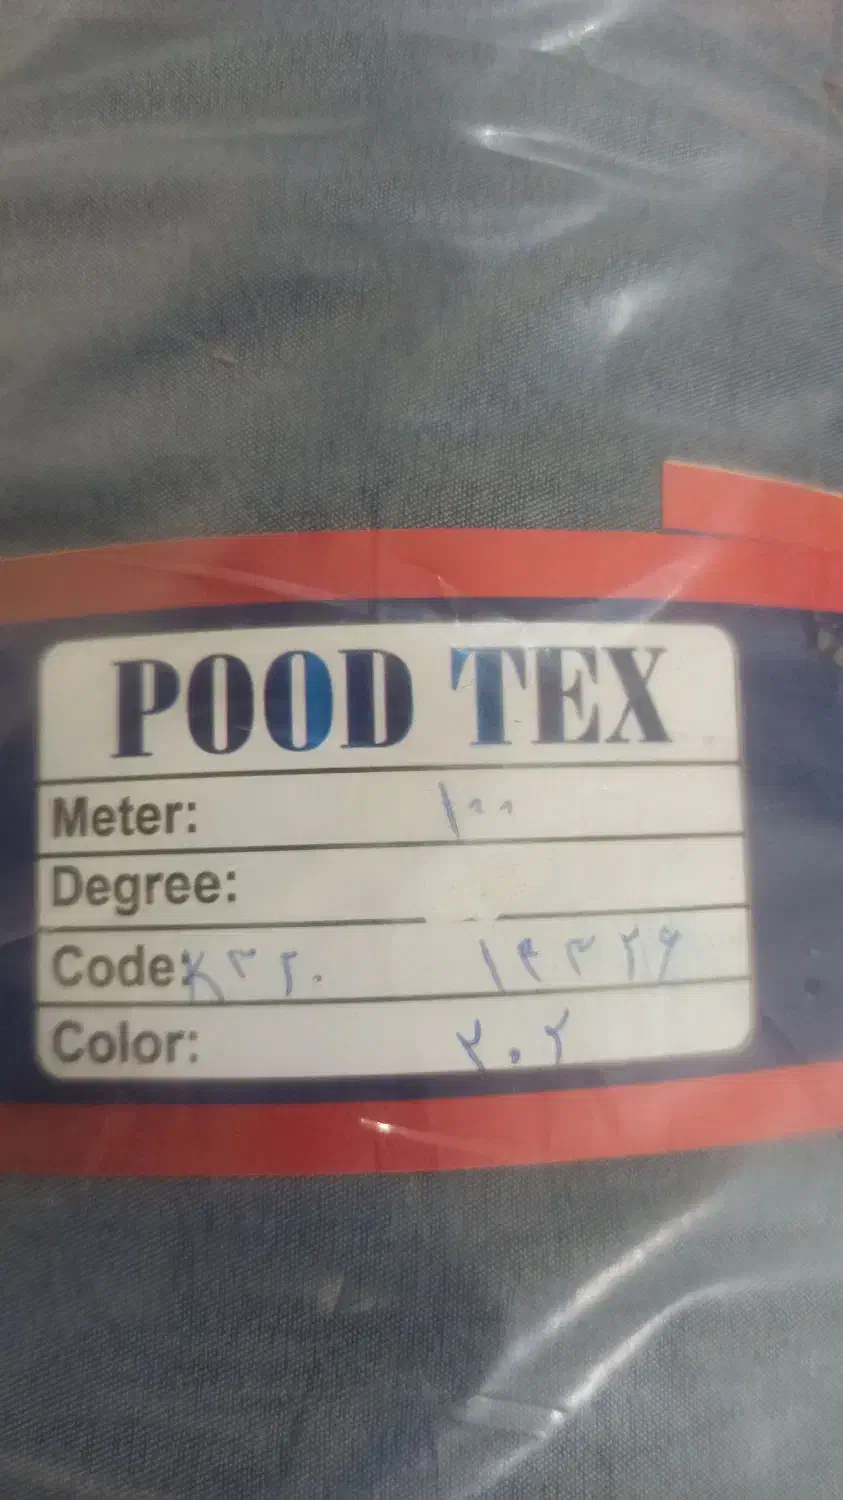 POOD TEX
Meter: ۱۰۰
Degree:
Code: K۳۲۰ ۱۴۳۲۶
Color: ۲۰۲